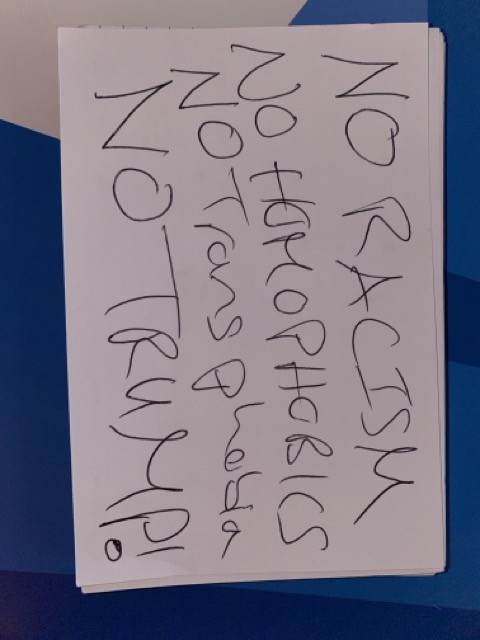 NO RACISM
NO HOMOPHOBICS
NO Transphobia
NO TRUMP!